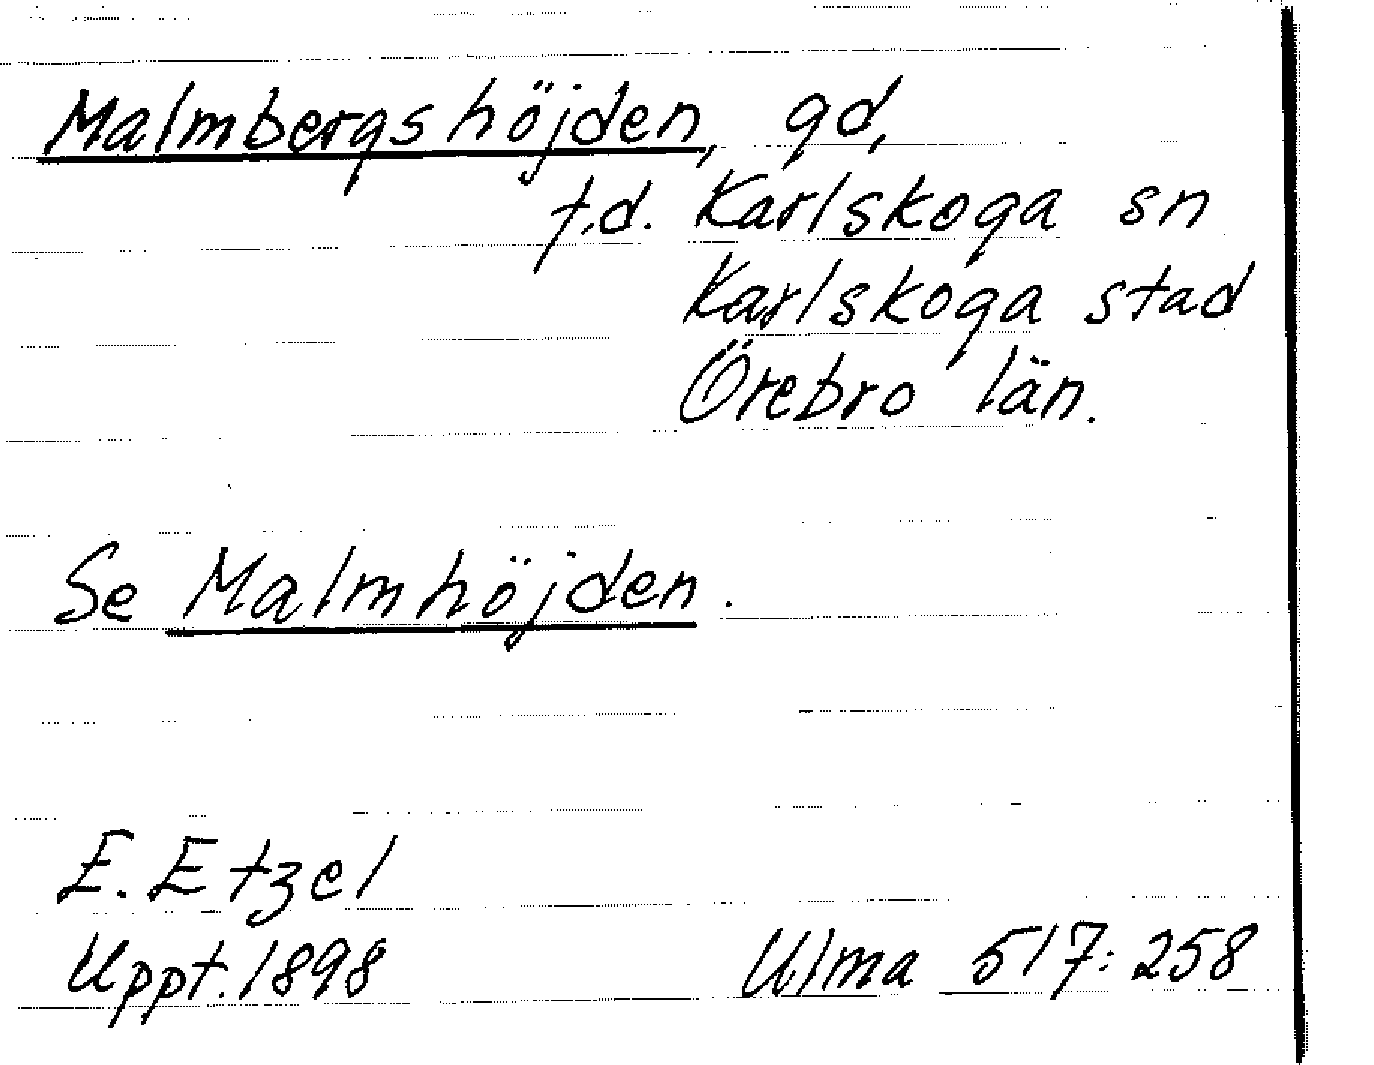 Malmbergshöjden, gd,
f.d. Karlskoga sn
Karlskoga stad
Örebro län.
Se Malmhöjden.
E. Etzel
Uppt. 1898 Ulma 517:258